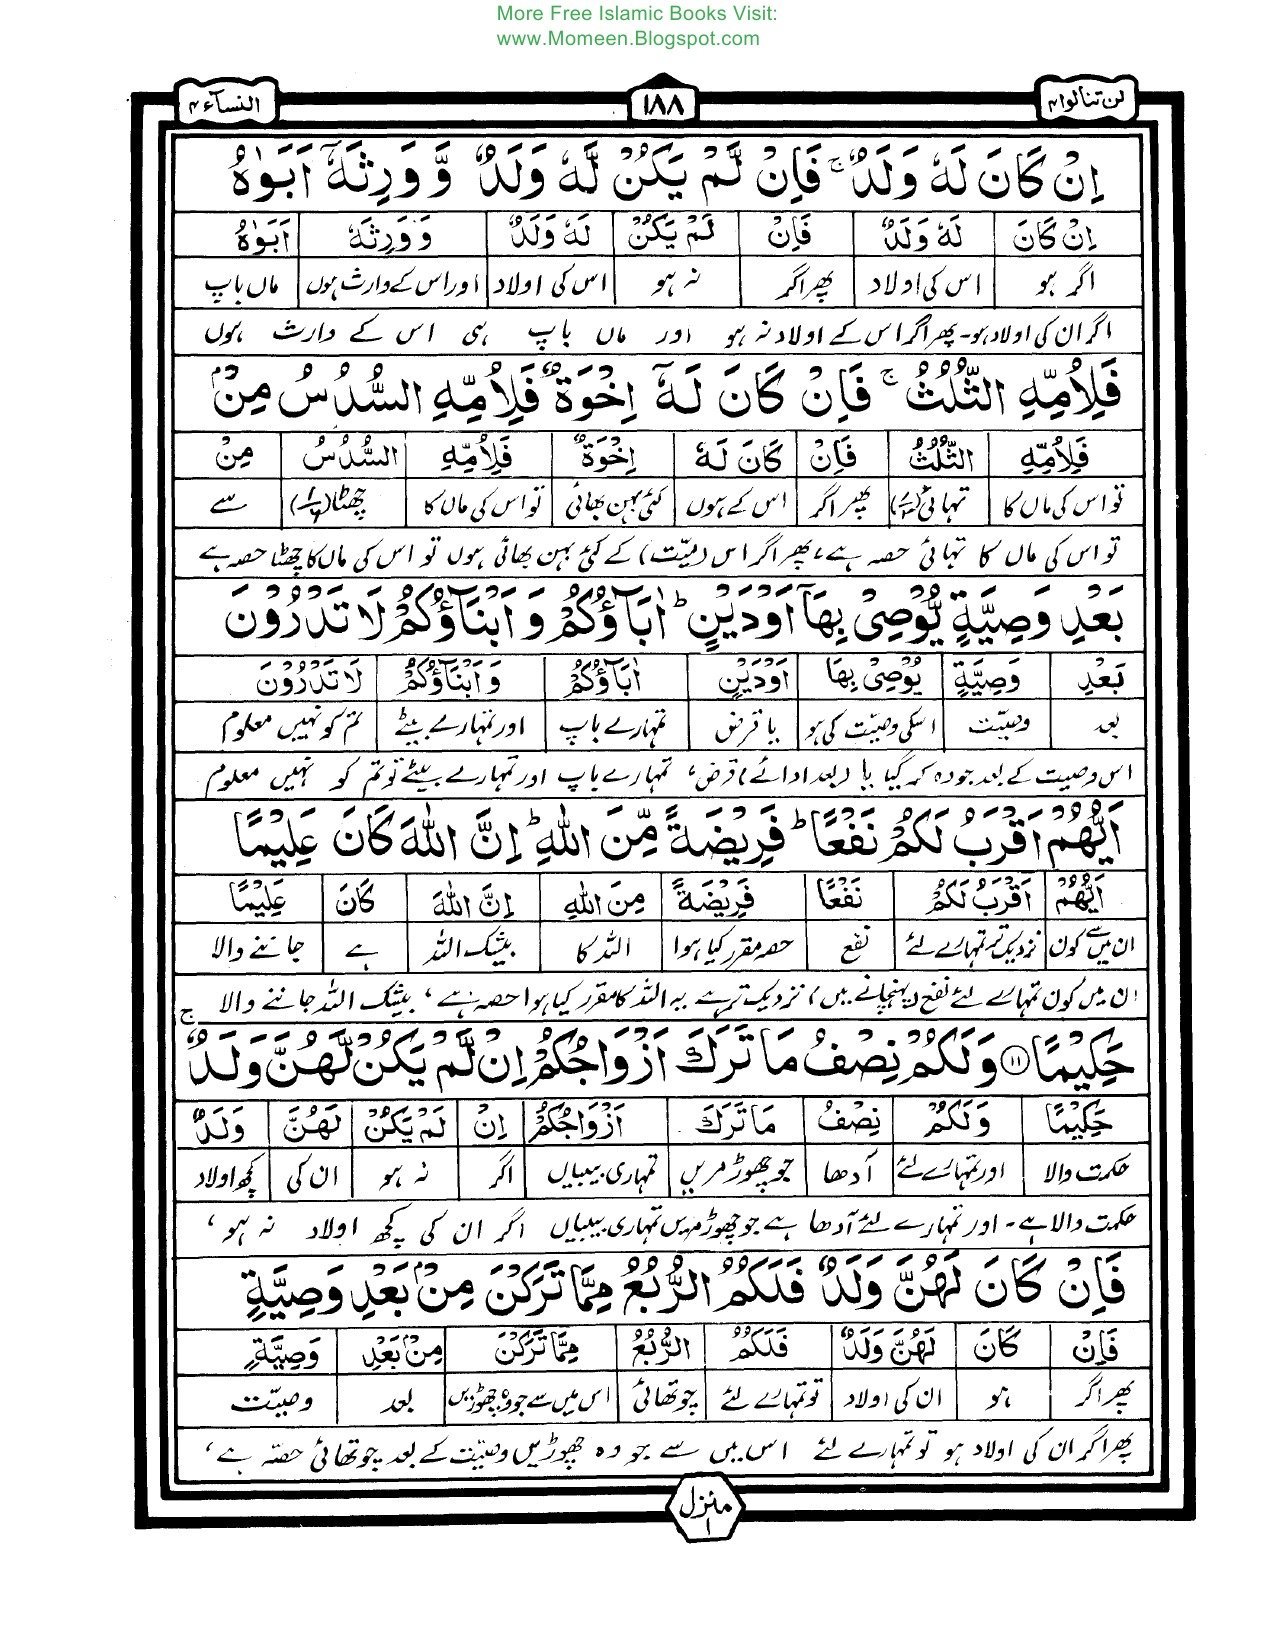 More Free Islamic Books Visit:
www.Momeen.Blogspot.com
لن تنالوا ۴ ۱۸۸ النسآء ۴
اِنْ كَانَ لَهٗ وَلَدٌ ۚ فَاِنْ لَّمْ يَكُنْ لَّهٗ وَلَدٌ وَّ وَرِثَهٗۤ اَبَوٰهُ
اِنْ كَانَ لَهٗ وَلَدٌ فَاِنْ لَمْ يَكُنْ لَهٗ وَلَدٌ وَ وَرِثَهٗ اَبَوٰهُ
اگر ہو اس کی اولاد پھر اگر نہ ہو اس کی اولاد اور اس کے وارث ہوں ماں باپ
اگر ان کی اولاد ہو۔ پھر اگر اس کے اولاد نہ ہو اور ماں باپ ہی اس کے وارث ہوں
فَلِاُمِّهِ الثُّلُثُ ۚ فَاِنْ كَانَ لَهٗۤ اِخْوَةٌ فَلِاُمِّهِ السُّدُسُ مِنْۢ
فَلِاُمِّهِ الثُّلُثُ فَاِنْ كَانَ لَهٗ اِخْوَةٌ فَلِاُمِّهِ السُّدُسُ مِنْ
تو اس کی ماں کا تہائی (۱/۳) پھر اگر اس کے ہوں کئی بہن بھائی تو اس کی ماں کا چھٹا (۱/۶) سے
تو اس کی ماں کا تہائی حصہ ہے، پھر اگر اس (میّت) کے کئی بہن بھائی ہوں تو اس کی ماں کا چھٹا حصہ ہے
بَعْدِ وَصِيَّةٍ يُّوْصِيْ بِهَاۤ اَوْ دَيْنٍ ؕ اٰبَآؤُكُمْ وَ اَبْنَآؤُكُمْ لَا تَدْرُوْنَ
بَعْدِ وَصِيَّةٍ يُوْصِيْ بِهَا اَوْ دَيْنٍ اٰبَآؤُكُمْ وَ اَبْنَآؤُكُمْ لَا تَدْرُوْنَ
بعد وصیّت اسکی وصیّت کی ہو یا قرض تمہارے باپ اور تمہارے بیٹے تم کو نہیں معلوم
اس وصیت کے بعد جو وہ کر گیا یا (بعد ادائے) قرض، تمہارے باپ اور تمہارے بیٹے تو تم کو نہیں معلوم
اَيُّهُمْ اَقْرَبُ لَكُمْ نَفْعًا ؕ فَرِيْضَةً مِّنَ اللّٰهِ ؕ اِنَّ اللّٰهَ كَانَ عَلِيْمًا
اَيُّهُمْ اَقْرَبُ لَكُمْ نَفْعًا فَرِيْضَةً مِنَ اللّٰهِ اِنَّ اللّٰهَ كَانَ عَلِيْمًا
ان میں سے کون نزدیک تر تمہارے لئے نفع حصہ مقرر کیا ہوا اللہ کا بیشک اللہ ہے جاننے والا
ان میں کون تمہارے لئے نفع (پہنچانے میں) نزدیک تر ہے یہ اللہ کا مقرر کیا ہوا حصہ ہے، بیشک اللہ جاننے والا
حَكِيْمًا ۱۱ وَ لَكُمْ نِصْفُ مَا تَرَكَ اَزْوَاجُكُمْ اِنْ لَّمْ يَكُنْ لَّهُنَّ وَلَدٌ ۚ
حَكِيْمًا وَ لَكُمْ نِصْفُ مَا تَرَكَ اَزْوَاجُكُمْ اِنْ لَمْ يَكُنْ لَهُنَّ وَلَدٌ
حکمت والا اور تمہارے لئے آدھا جو چھوڑ مریں تمہاری بیبیاں اگر نہ ہو ان کی کچھ اولاد
حکمت والا ہے۔ اور تمہارے لئے آدھا ہے جو چھوڑ مریں تمہاری بیبیاں اگر ان کی کچھ اولاد نہ ہو،
فَاِنْ كَانَ لَهُنَّ وَلَدٌ فَلَكُمُ الرُّبُعُ مِمَّا تَرَكْنَ مِنْۢ بَعْدِ وَصِيَّةٍ
فَاِنْ كَانَ لَهُنَّ وَلَدٌ فَلَكُمُ الرُّبُعُ مِمَّا تَرَكْنَ مِنْۢ بَعْدِ وَصِيَّةٍ
پھر اگر ہو ان کی اولاد تو تمہارے لئے چوتھائی اس میں سے جو وہ چھوڑیں بعد وصیّت
پھر اگر ان کی اولاد ہو تو تمہارے لئے اس میں سے جو وہ چھوڑیں وصیّت کے بعد چوتھائی حصّہ ہے،
منزل ۱